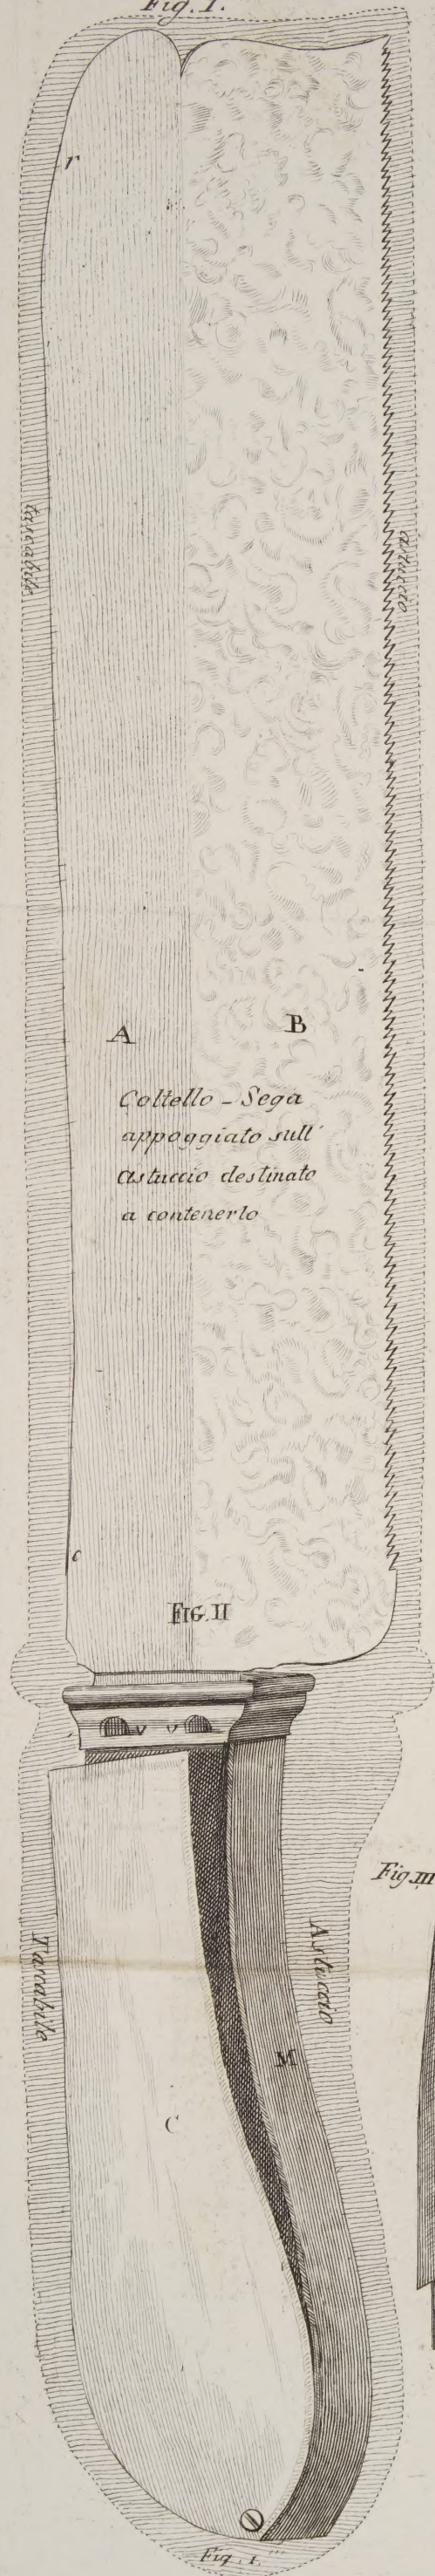 Fig. I.
r
tascabile
astuccio
A
B
Coltello - Sega
appoggiato sull'
astuccio destinato
a contenerlo
c
FIG. II
Fig. III
Tascabile
Astuccio
M
C
Fig. I.